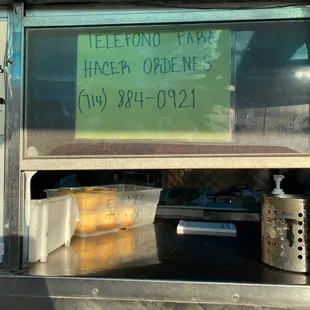 TELEFONO PARA
HACER ORDENES
(714) 884-0921